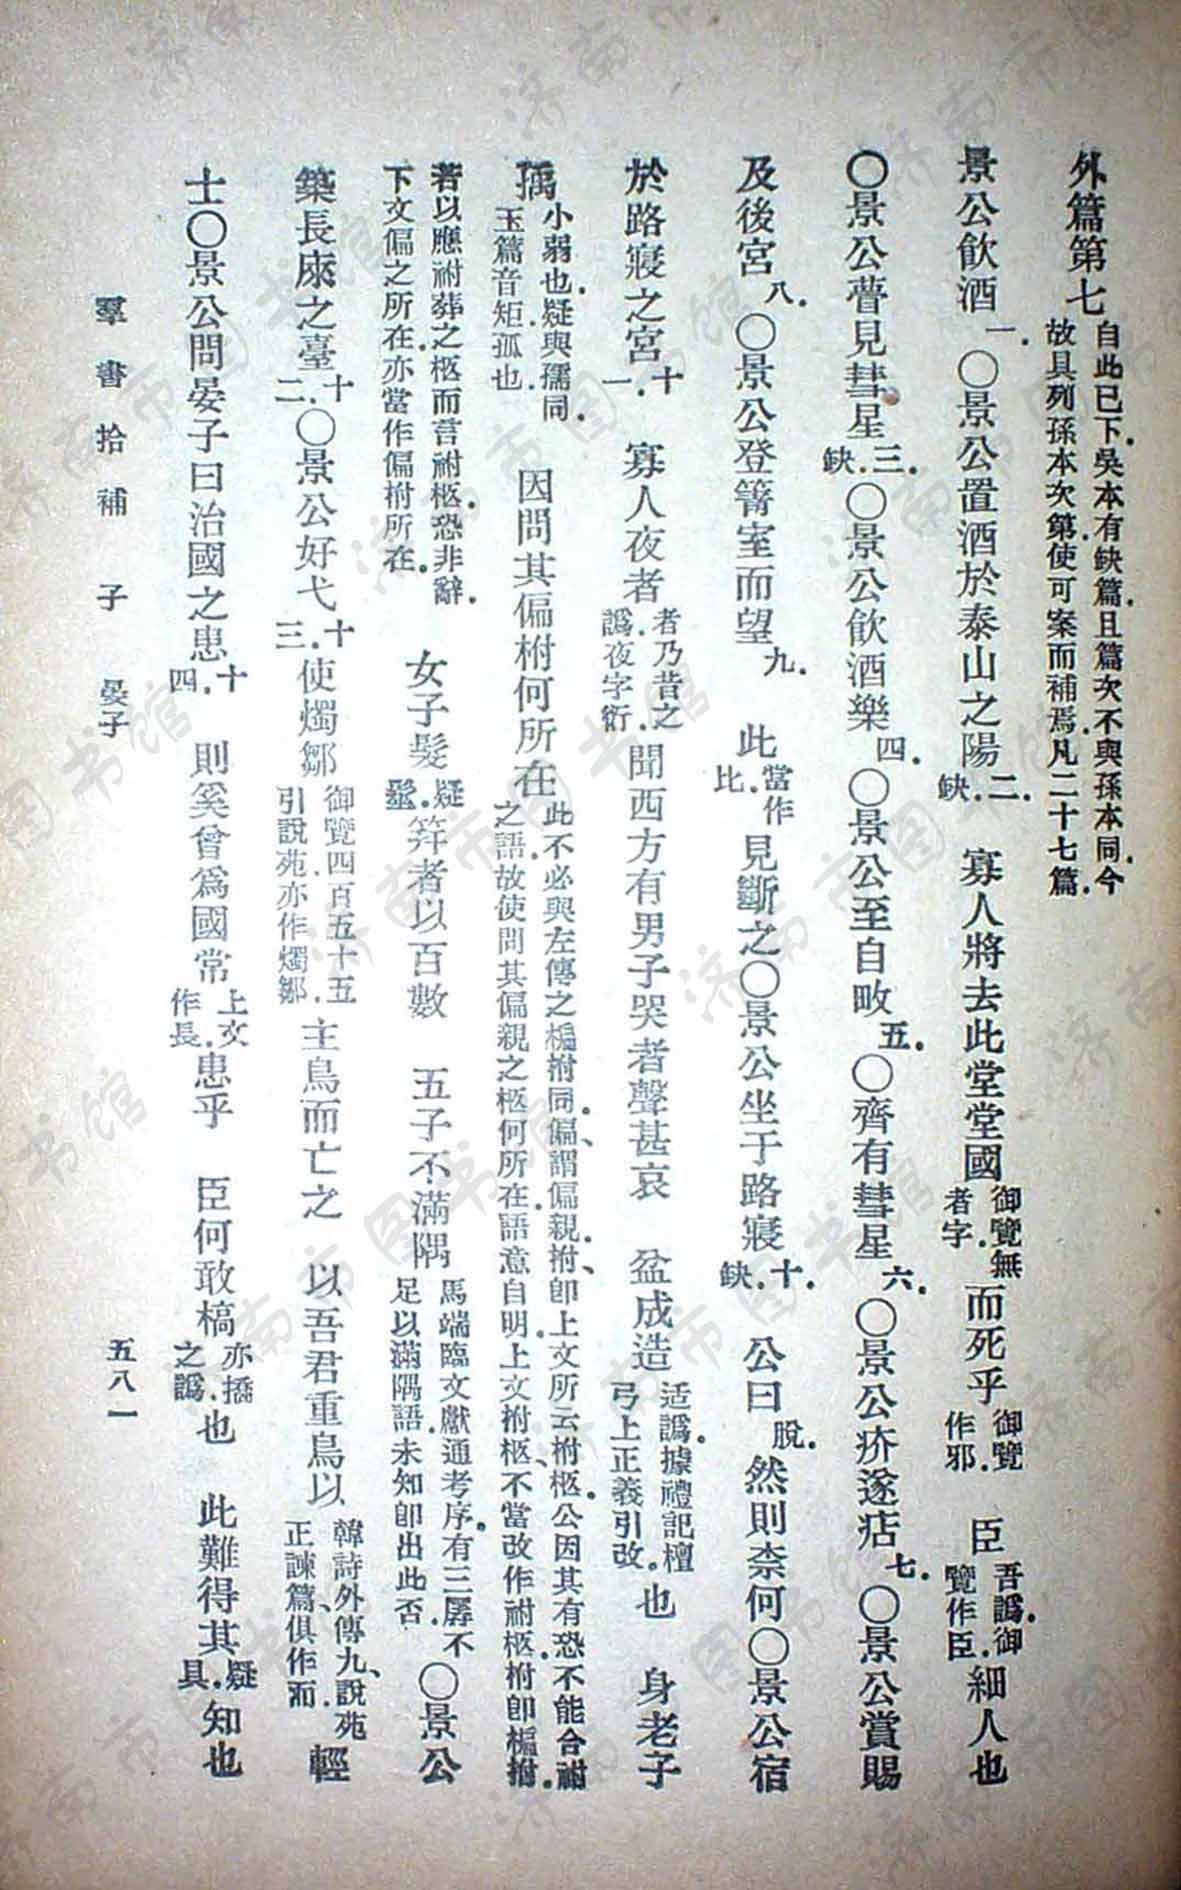 外篇第七 自此已下.吳本有缺篇.且篇次不與孫本同.今故具列孫本次第.使可案而補焉.凡二十七篇.
景公飲酒一.○景公置酒於泰山之陽二.缺. 寡人將去此堂堂國御覽無者字.而死乎御覽作邪. 臣吾譌.御覽作臣.細人也
○景公瞢見彗星三.缺.○景公飲酒樂四.○景公至自畋五.○齊有彗星六.○景公疥遂痁七.○景公賞賜
及後宮八.○景公登箐室而望九. 此當作比.見斷之○景公坐于路寢十.缺. 公曰脫.然則柰何○景公宿
於路寢之宮十一. 寡人夜者者乃昔之譌.夜字衍.聞西方有男子哭者聲甚哀 盆成造适譌.據禮記檀弓上正義引改.也 身老子
㺄小弱也.疑與孺同.玉篇音矩.孤也. 因問其偏柎何所在此不必與左傳之楄拊同.偏、謂偏親.拊、卽上文所云柎柩.公因其有恐不能合祔之語.故使問其偏親之柩何所在.語意自明.上文拊柩、不當改作祔柩.柎卽楄拊.
若以應祔葬之柩而言祔柩.恐非辭.下文偏之所在.亦當作偏柎所在. 女子髮疑髽.笄者以百數 五子不滿隅馬端臨文獻通考序.有三孱不足以滿隅語.未知卽出此否.○景公
築長庲之臺十二.○景公好弋十三.使燭鄒御覽四百五十五引說苑亦作燭鄒.主鳥而亡之 以吾君重鳥以韓詩外傳九、說苑正諫篇、俱作而.輕
士○景公問晏子曰治國之患十四. 則奚曾爲國常上文作長.患乎 臣何敢槁亦撟之譌.也 此難得其疑具.知也
羣書拾補 子 晏子 五八一